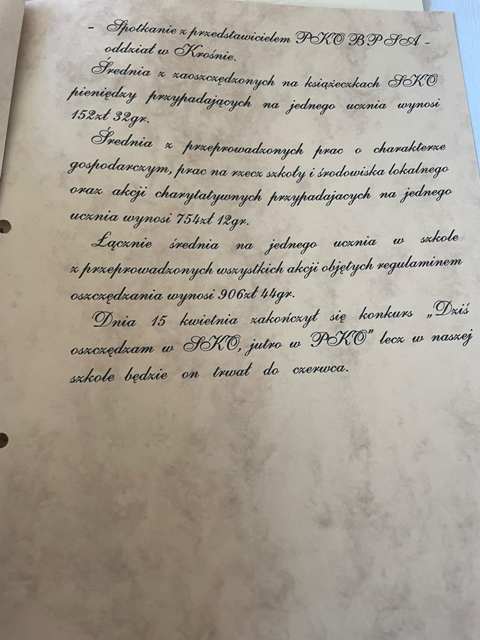 - Spotkanie z przedstawicielem PKO B P S A -
oddział w Krośnie.
Średnia z zaoszczędzonych na książeczkach SKO
pieniędzy przypadających na jednego ucznia wynosi
152zł 32gr.
Średnia z przeprowadzonych prac o charakterze
gospodarczym, prac na rzecz szkoły i środowiska lokalnego
oraz akcji charytatywnych przypadajacych na jednego
ucznia wynosi 754zł 12gr.
Łącznie średnia na jednego ucznia w szkole
z przeprowadzonych wszystkich akcji objętych regulaminem
oszczędzania wynosi 906zł 44gr.
Dnia 15 kwietnia zakończył się konkurs „Dziś
oszczędzam w SKO, jutro w PKO” lecz w naszej
szkole będzie on trwał do czerwca.